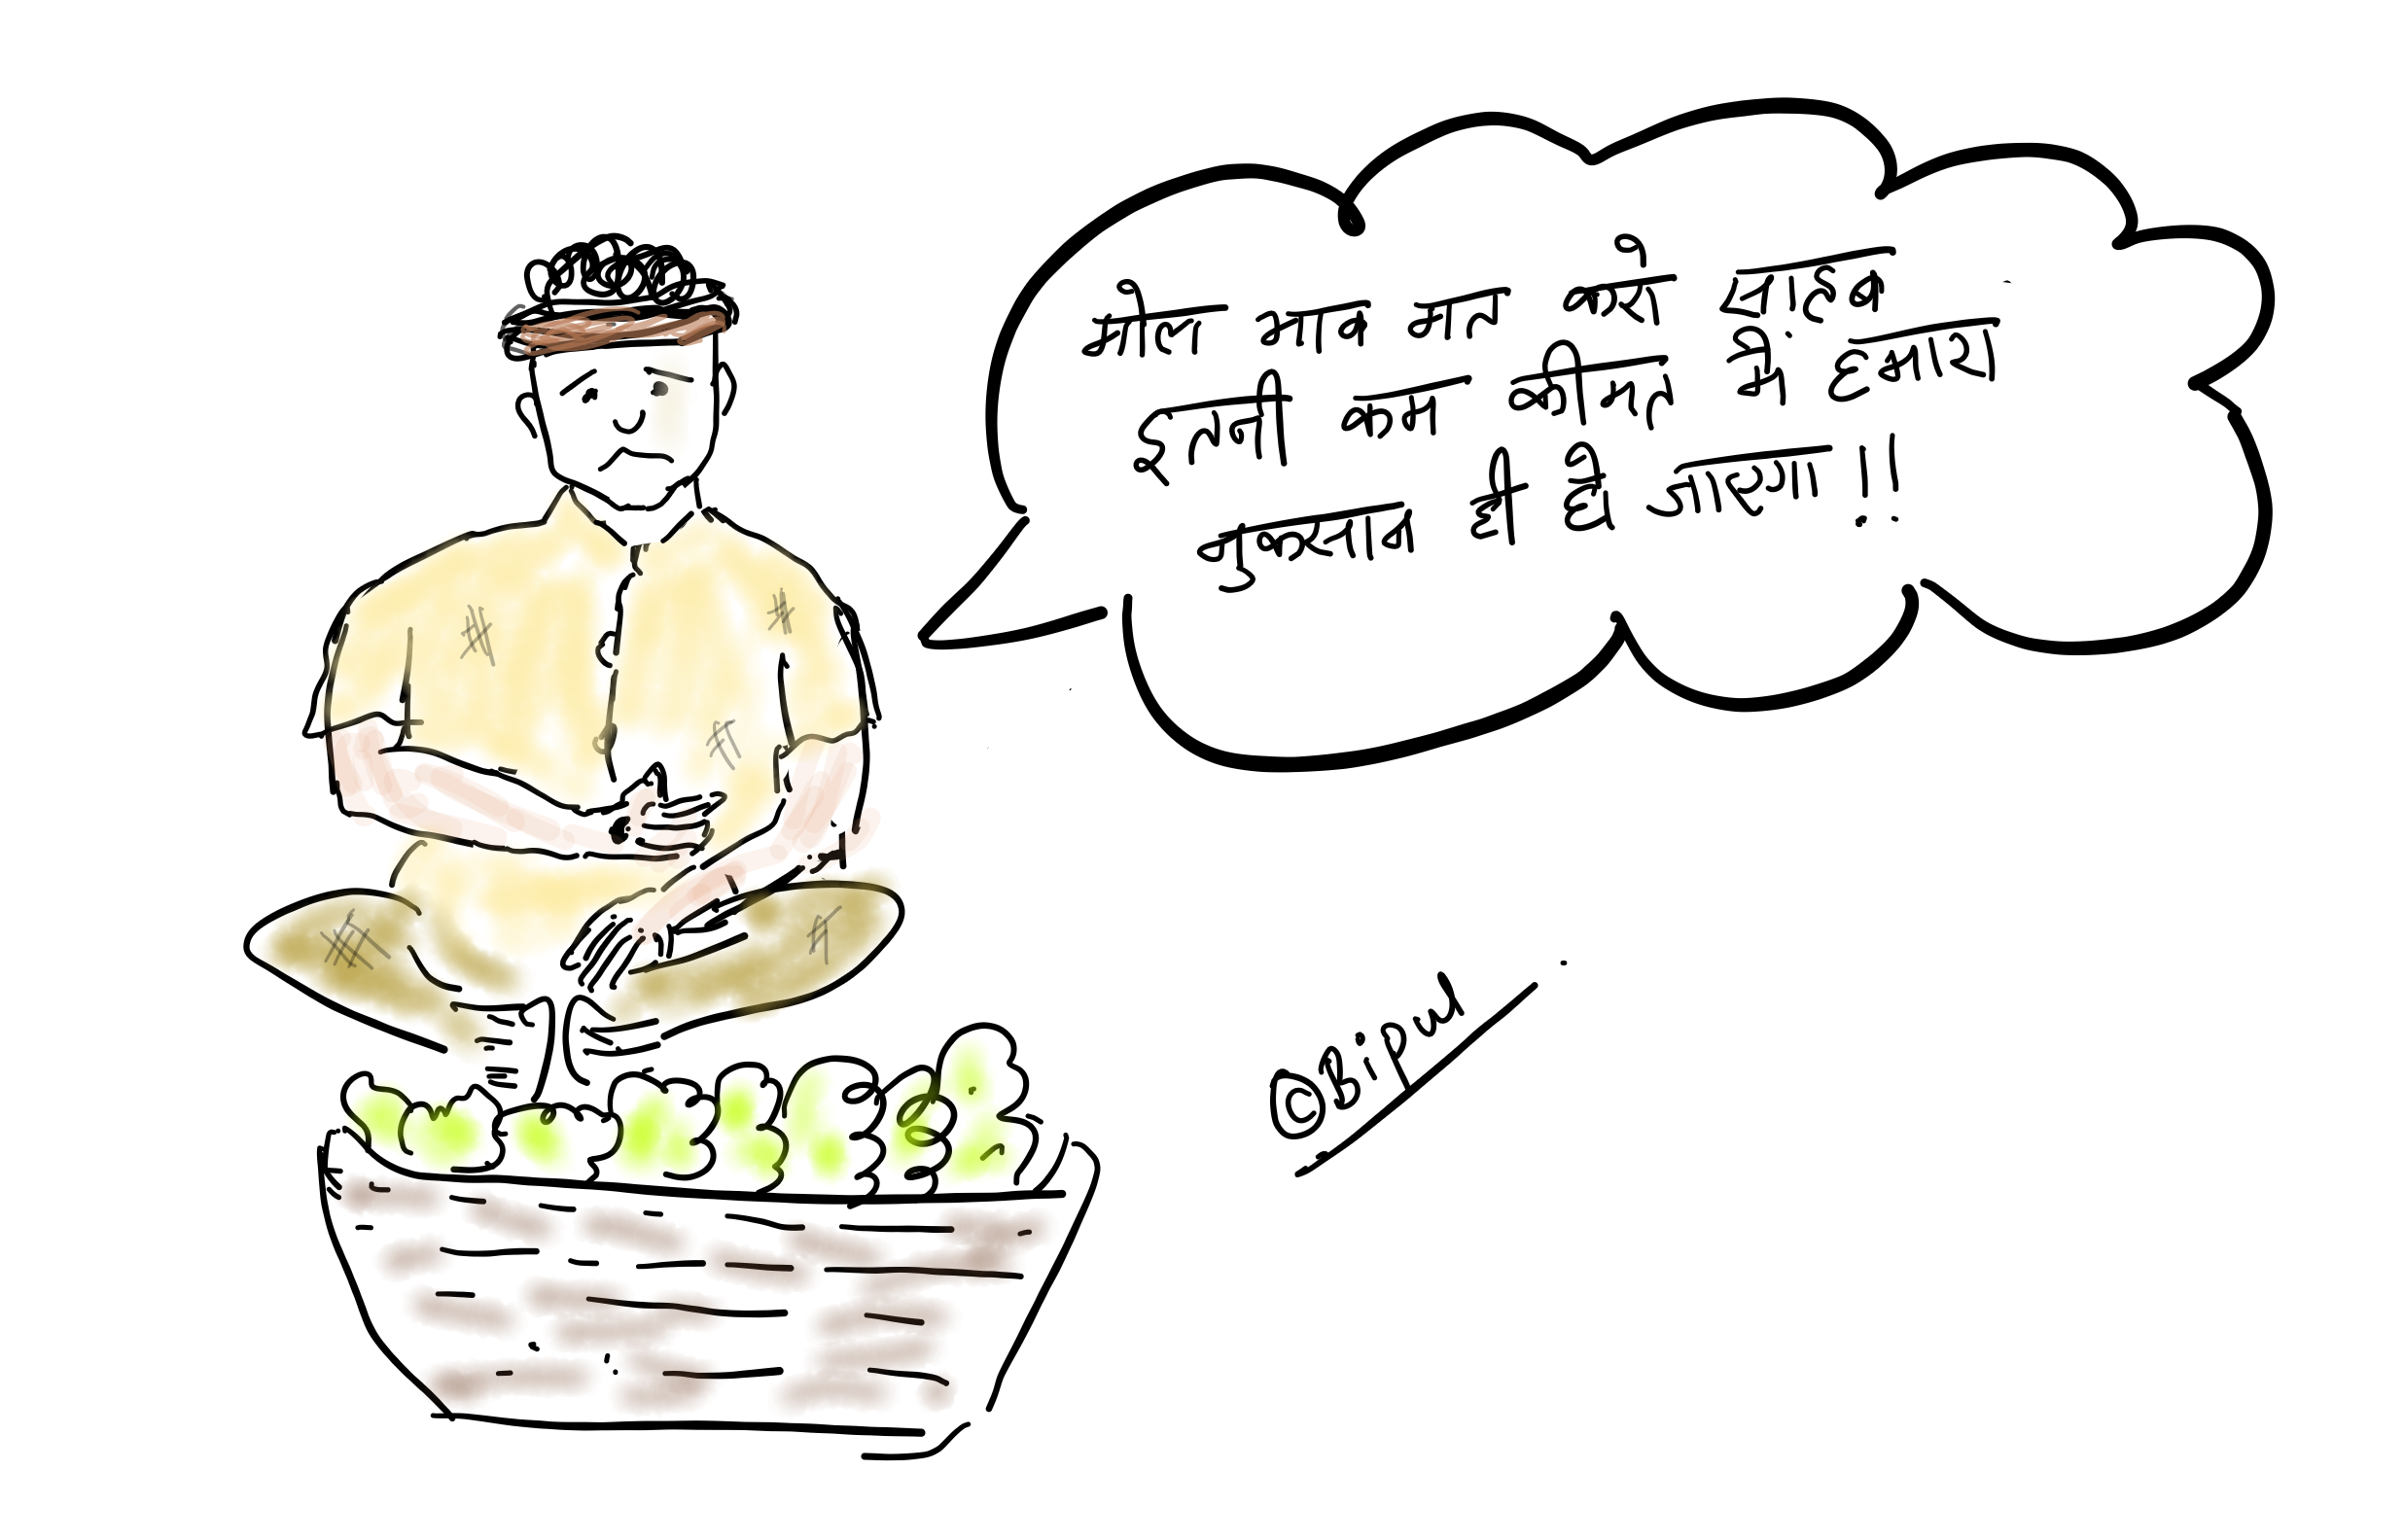 मोल भाव मत करो साहब
इतनी कम कीमत में हमारा
नुकसान ही हो जाएगा !!
©Bipul